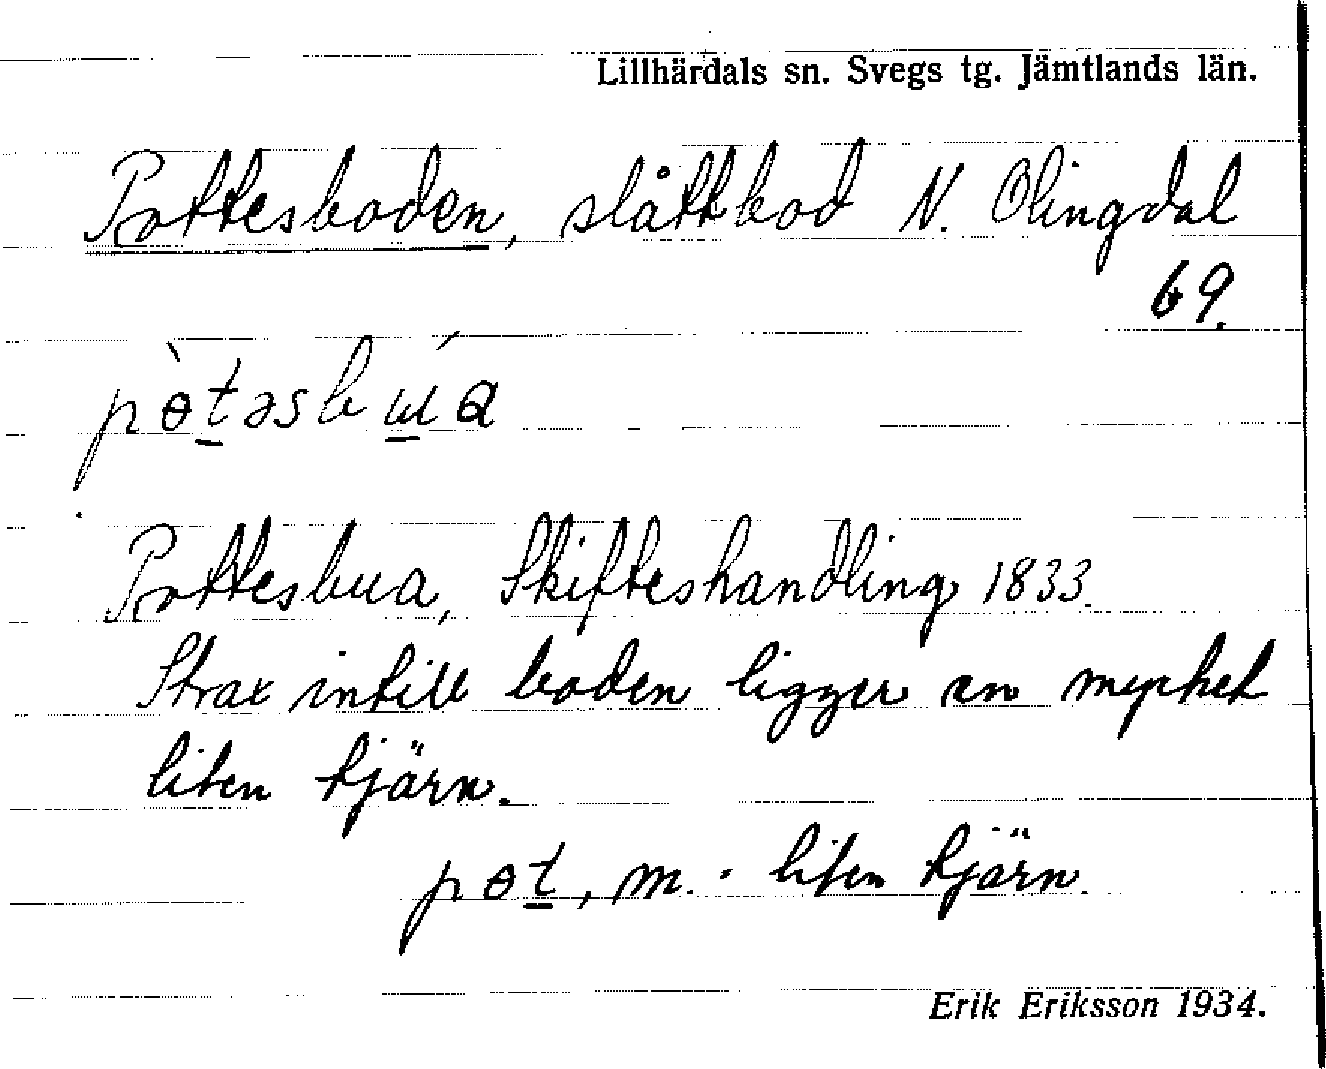 Lillhärdals sn. Svegs tg. Jämtlands län.
Pottesboden, slåttbod N. Olingdal
69.
pɵ̀t̲əsbú̲a
Pottesbua, Skifteshandling 1833.
Strax intill boden ligger en mycket
liten tjärn.
pɵt̲, m. · liten tjärn.
Erik Eriksson 1934.